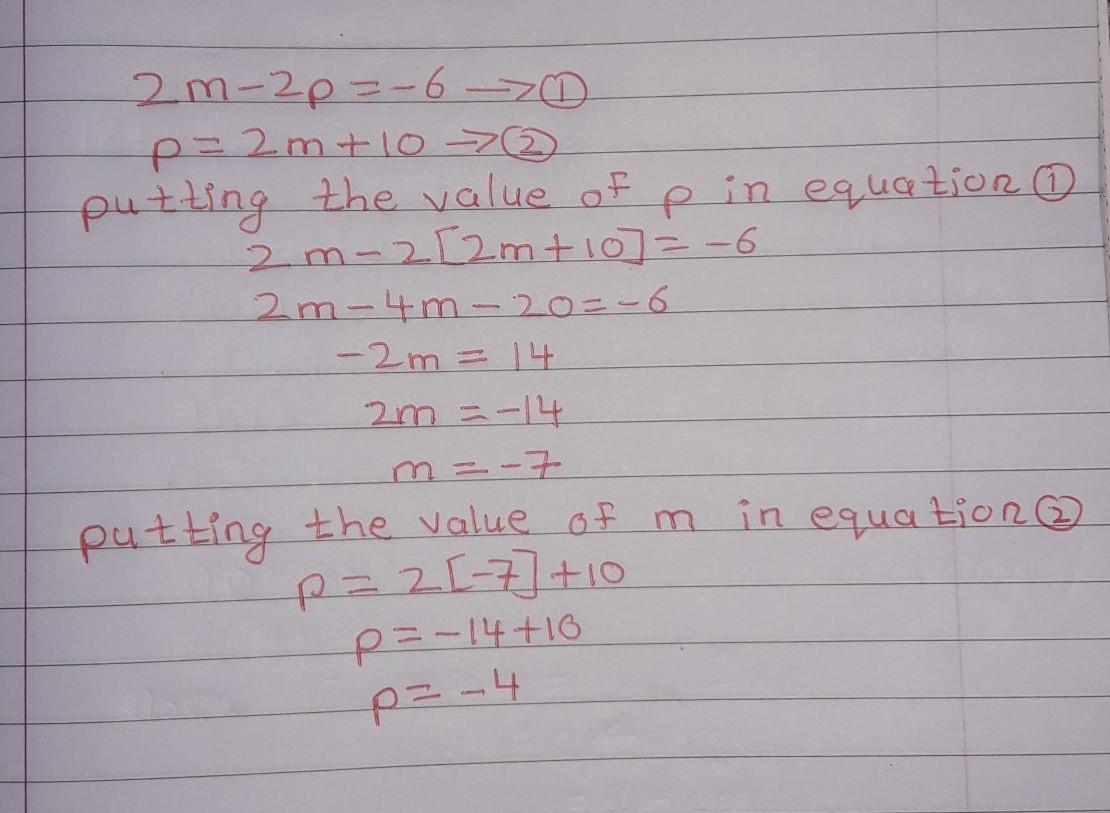 2m-2p=-6 →①
p=2m+10→②
putting the value of p in equation①
2m-2[2m+10]=-6
2m-4m-20=-6
-2m=14
2m=-14
m=-7
putting the value of m in equation②
p=2[-7]+10
p=-14+10
p=-4